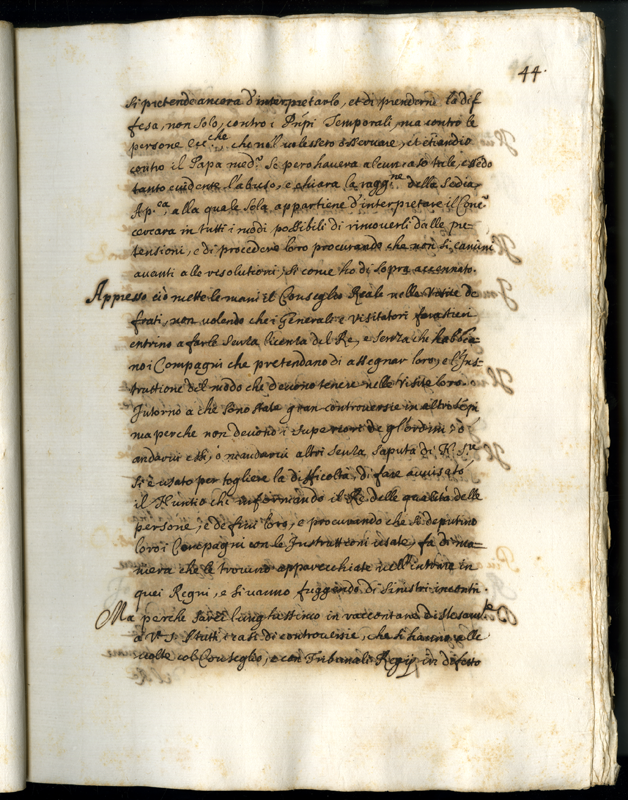 44.
si pretende ancora d'interpretarlo, et di prenderne la dif
fesa, non solo, contro i Prñpi Temporali, ma contro le
persone Ecc.che che no'l volessero osservare, et etiandio
contro il Papa med.o Se però havera alcun caso tale, essedo
tanto evidente l'abuso, e chiara la ragg.ne della Sedia
Ap.ca, alla quale sola appartiene d'interpretare il Conc.o
cercara in tutti i modi possibili di rimoverli dalle pre-
tensioni, e di procedere loro procurando che non si camini
avanti alle resolutioni, si come ho di sopra accennato.
Appresso ciò mette le mani il Conseglio Reale nelle Visite de
frati, non volendo che i Generali e Visitatori forastieri
entrino a farle senza licenza del Re, e senza che habbia-
no i Compagni che pretendano di assegnar loro, e l'Ins-
truttione del modo che devono tenere nelle Visite loro.
Intorno a che sono state gran controversie in altri tẽpi
ma perche non devono i superiori de gl'ordini
andarvi essi, o mandarvi altri senza saputa di N. S.re
si è usato per togliere la difficoltà, di fare avvisato
il Nuntio che informando il Re delle qualità delle
persone, e de fini loro, e procurando che si deputino
loro i Compagni con le Instruttioni usate, fa di ma-
niera che le trovino apparecchiate nell'entrare in
quei Regni, e si vanno fuggendo di sinistri incontri.
Ma perche sarei lunghissimo in raccontare distesam.te
a V. S. tutti i casi di controversie, che si hanno alle
volte col Conseglio, e con Tribunali Regij in difetto